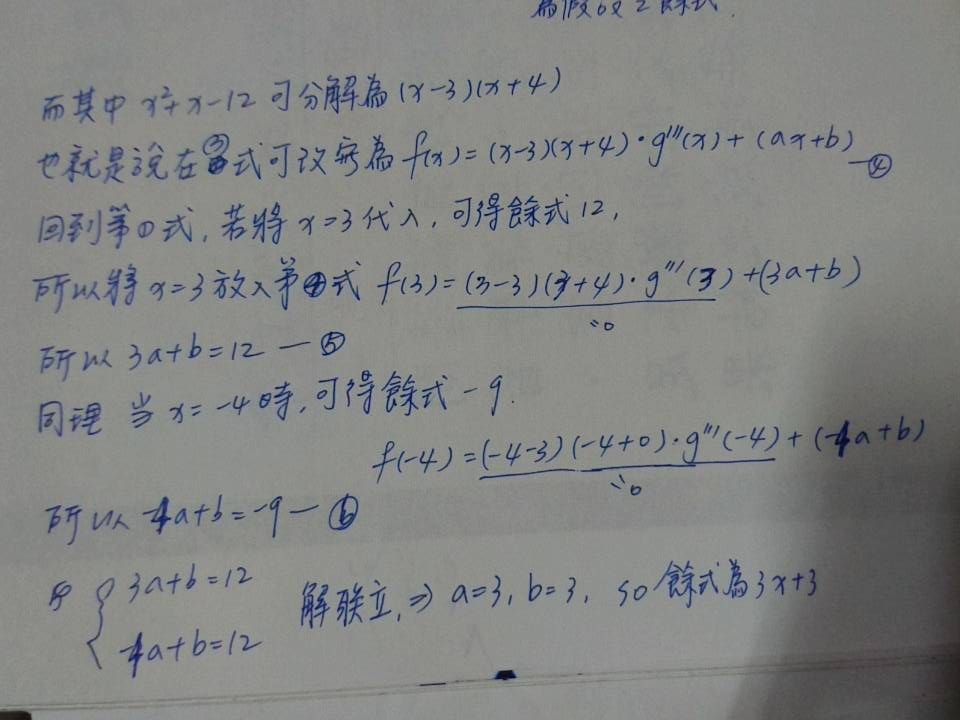 為假設之餘式.
而其中 x²+x-12 可分解為 (x-3)(x+4)
也就是說在③式可改寫為 f(x)=(x-3)(x+4)·g'''(x)+(ax+b) —④
回到第①式, 若將 x=3 代入, 可得餘式 12,
所以將 x=3 放入第④式 f(3)=(3-3)(3+4)·g'''(3)+(3a+b)
=0
所以 3a+b=12 —⑤
同理 当 x=-4 時, 可得餘式 -9.
f(-4)=(-4-3)(-4+0)·g'''(-4)+(-4a+b)
=0
所以 -4a+b=-9 —⑥
{ 3a+b=12
-4a+b=12
解聯立, ⇒ a=3, b=3, so 餘式為 3x+3